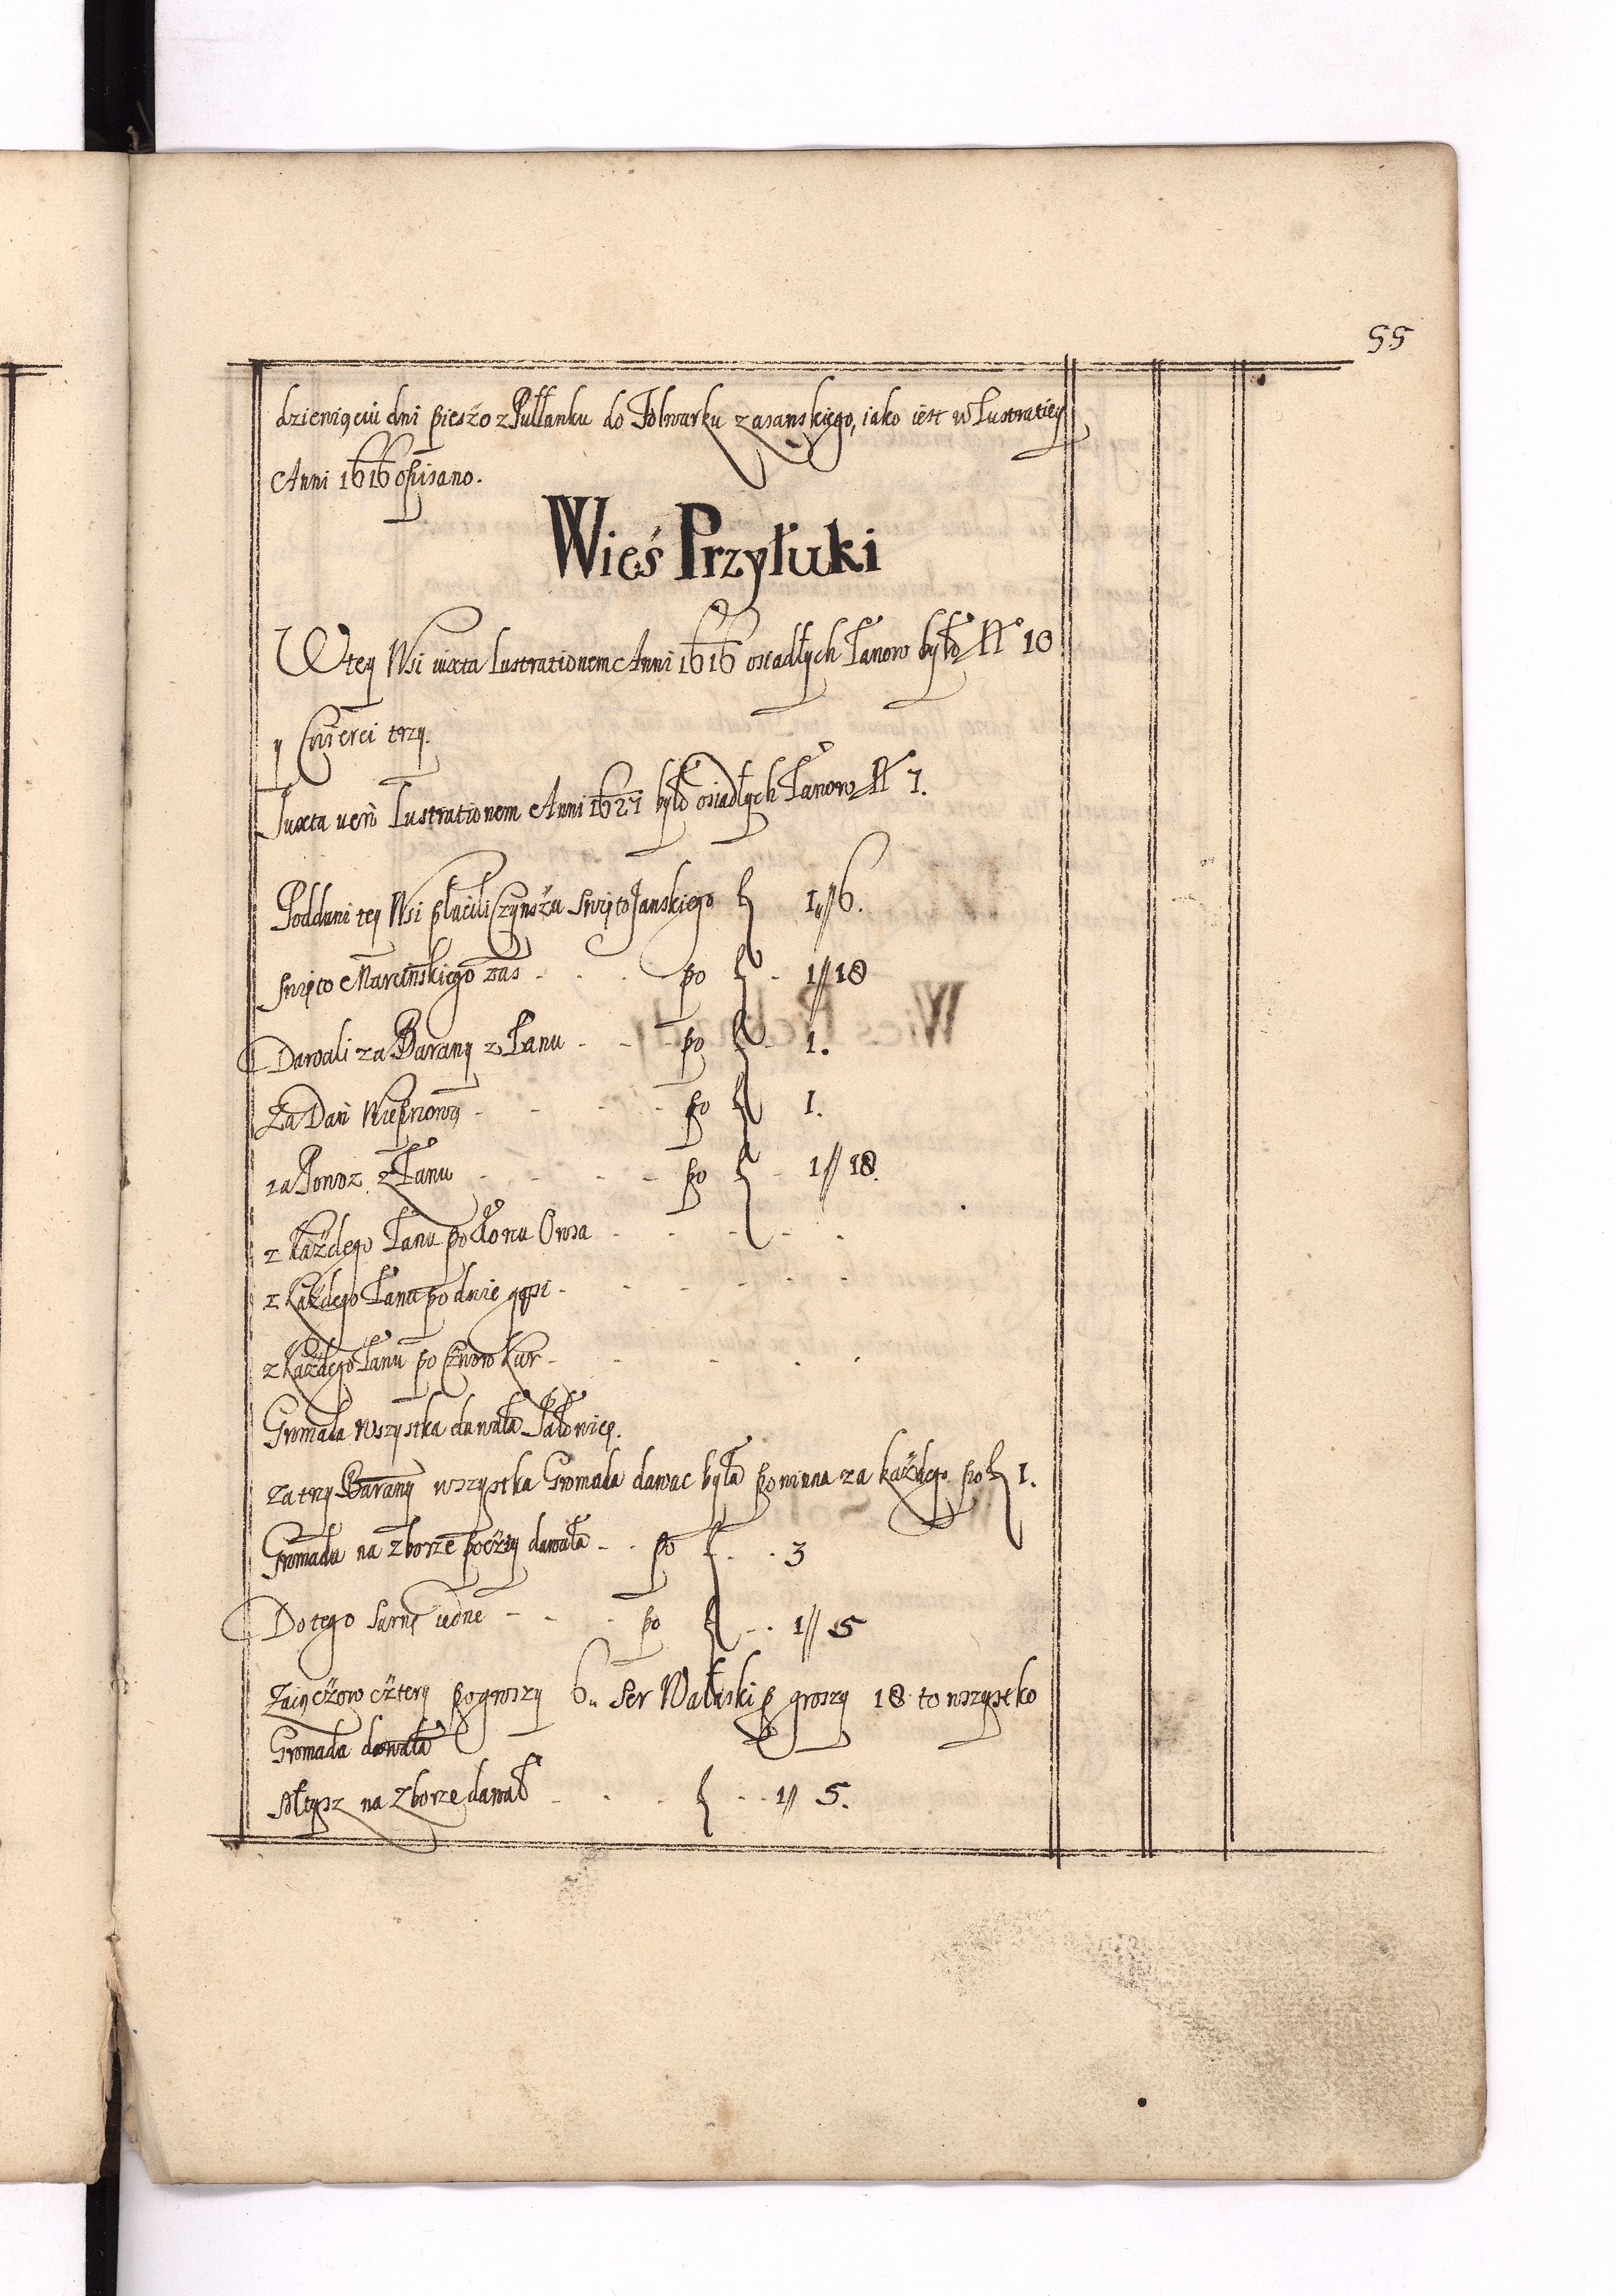 55
dziewięciu dni pieszo z Pułłanku do Folwarku zasanskiego, iako iest w Lustratiey
Anni 1616 opisano.
Wieś Przyłuki
W tey Wsi iuxta Lustrationem Anni 1616 osiadłych Łanow było No 10
y Cwierci trzy.
Iuxta uero Lustrationem Anni 1627 było osiadłych Łanow No 7.
Poddani tey Wsi płacili Czynszu Swięto Janskiego 1 // 6.
Swięto Marcinskiego zas - - po - 1 // 18
Dawali za Barany z Łanu - - po - 1.
Za Dań Wieprzową - - - po 1.
za Powoz z Łanu - - - po - 1 // 18.
z Każdego Łanu po Kłonu Owsa - - - - -
z Każdego Łanu po dwie gęsi - - - - - -
z Każdego Łanu po Kur - - - - -
Gromada Wszystka dawała Jałowicę.
za trzy Barany wszystka Gromada dawac była powinna za każdego po 1.
Gromada na zborze poczty dawała - - po - - 3
Do tego Sarnę iedne - - - po - - 1 // 5
Zaięczow cztery po groszy 6 Ser Wałaski p groszy 18 to wszystko
Gromada dawała
Sołtysz na Zborze dawał - - - - - 1 // 5.